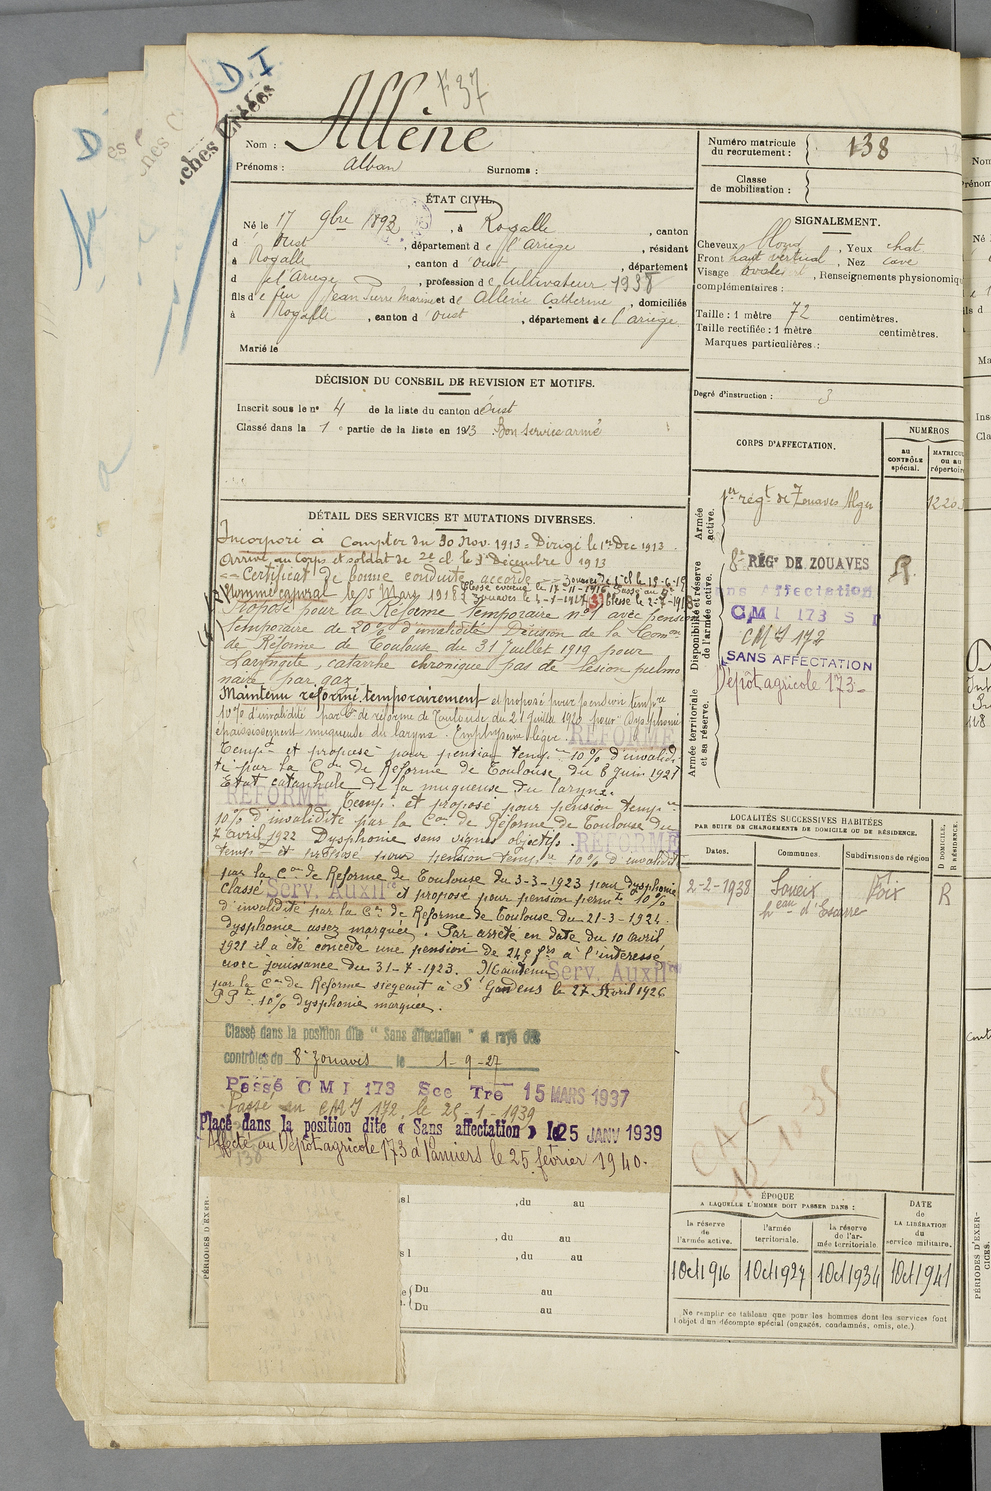 D.I
F37
Fiches Créées
Nom : Allène
Prénoms : Alban Surnoms :
ÉTAT CIVIL.
Né le 17 9bre 1893, à Rogalle, canton
d'Oust, département de l'Ariège, résidant
à Rogalle, canton d'Oust, département
de l'Ariège, profession de Cultivateur 1938
fils de feu Jean Pierre Marine et de Allène Catherine, domiciliés
à Rogalle, canton d'Oust, département de l'ariège
Marié le
DÉCISION DU CONSEIL DE REVISION ET MOTIFS.
Inscrit sous le n° 4 de la liste du canton d'Oust
Classé dans la 1e partie de la liste en 1913 Bon service armé
DÉTAIL DES SERVICES ET MUTATIONS DIVERSES.
Incorporé à Compter du 30 Nov. 1913 = Dirigé le 1er Dec 1913.
Arrivé au corps et soldat de 2e cl le 3 Décembre 1913
Certificat de bonne conduite accordé = Zouave de 1e cl le 15-6-15
Nommé caporal le 15 Mars 1918 Blessé évacué le 17-11-1916 Passé au 8e
Zouaves le 4-1-1917 (3) blessé le 2-7-1918
Proposé pour la Réforme temporaire n° 1 avec pension
temporaire de 20% d'invalidité Décision de la Comon
de Réforme de Toulouse du 31 Juillet 1919 pour
Laryngite, catarrhe chronique pas de lésion pulmo
naire par gaz
Maintenu réformé temporairement et proposé pour pension tempre
10% d'invalidité par Con de réforme de Toulouse du 21 Juillet 1920 pour Dysphonie
épaississement muqueuse du larynx. Emphysème léger REFORME
Tempre et proposé pour pension tempre 10% d'invalidi
té par la Con de Réforme de Toulouse du 8 juin 1921
Etat catarrhale de la muqueuse du larynx.
REFORME Tempre et proposé pour pension tempre
10% d'invalidité par la Con de Réforme de Toulouse du
7 avril 1922 Dysphonie sans signes objectifs. REFORME
temp re et proposé pour pension tempre 10% d'invalidité
par la Con de Réforme de Toulouse du 3-3-1923 pour dysphonie
Classé Serv. Auxil re et proposé pour pension permte 10%
d'invalidité par la Con de Réforme de Toulouse du 21-3-1924.
dysphonie assez marquée. Par arrêté en date du 10 avril
1921 il a été concédé une pension de 245 frs à l'intéressé
avec jouissance du 31-7-1923. Maintenu Serv. Auxil re
par la Con de Réforme siégeant à St Gaudens le 27 Avril 1926
P.P.t 10% dysphonie marquée.
Classé dans la position dite "Sans affectation" et rayé des
contrôles du 8e Zouaves le 1-9-27
Passé C M I 173 Sce Tre 15 MARS 1937
Passé au CMI 172, le 25-1-1939
Placé dans la position dite « Sans affectation » le 25 JANV 1939
Affecté au Dépôt agricole 173 à Pamiers le 25 février 1940.
138
,du au
,du au
,du au
Du au
Du au
PÉRIODES D'EXER-
Numéro matricule du recrutement : 138
Classe de mobilisation :
SIGNALEMENT.
Cheveux blond, Yeux chat.
Front haut vertical, Nez cave
Visage ovale, Renseignements physionomiqu
complémentaires :
Taille : 1 mètre 72 centimètres.
Taille rectifiée : 1 mètre centimètres.
Marques particulières :
Degré d'instruction : 3
CORPS D'AFFECTATION.
NUMÉROS
au CONTRÔLE spécial.
MATRICUL ou au répertoire
Armée active.
1er régt de Zouaves Alger 1220
Disponibilité et réserve de l'armée active.
8e RÉGt DE ZOUAVES
Sans Affectation
C M I 173 S T
CMI 172
SANS AFFECTATION
Dépôt agricole 173 =
Armée territoriale et sa réserve.
LOCALITÉS SUCCESSIVES HABITÉES
PAR SUITE DE CHANGEMENTS DE DOMICILE OU DE RÉSIDENCE.
Dates. Communes. Subdivisions de région D DOMICILE, R RÉSIDENCE.
2-2-1938 Soueix Foix R
heau d'Escarre
ÉPOQUE
A LAQUELLE L'HOMME DOIT PASSER DANS :
DATE de LA LIBÉRATION du service militaire.
la réserve de l'armée active. l'armée territoriale. la réserve de l'armée territoriale
1 Oct 1916 1 Oct 1927 1 Oct 1934 1 Oct 1941
Ne remplir ce tableau que pour les hommes dont les services font
l'objet d'un décompte spécial (engagés, condamnés, omis, etc.).
PÉRIODES D'EXER-
CICES.